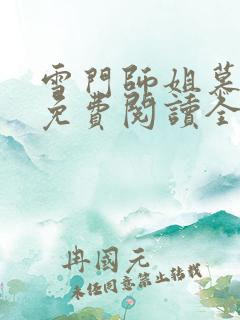 雪門師姐慕
免費閱讀全
冉國元
未经同意禁止转载